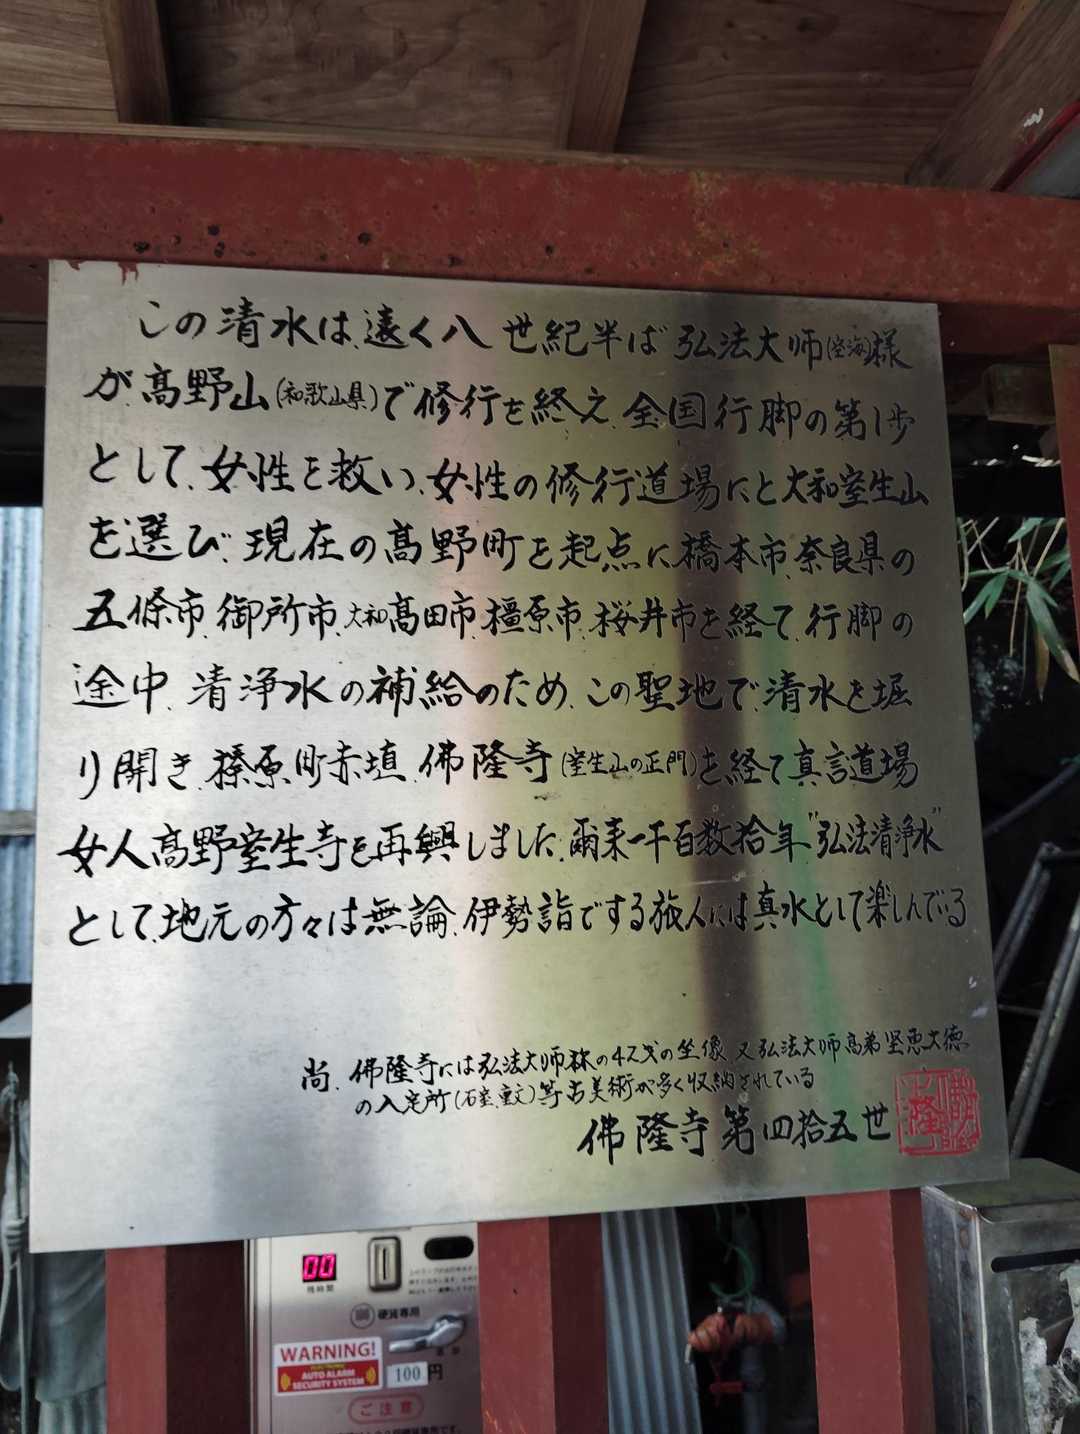 この清水は、遠く八世紀半ば弘法大師(空海)様
が、髙野山(和歌山県)で修行を終え、全国行脚の第1歩
として、女性を救い、女性の修行道場にと大和室生山
を選び、現在の髙野町を起点に、橋本市、奈良県の
五條市、御所市、大和髙田市、橿原市、桜井市を経て、行脚の
途中、清浄水の補給のため、この聖地で、清水を堀
り開き、榛原町赤埴、佛隆寺(室生山の正門)を経て真言道場
女人髙野室生寺を再興しました、爾来一千百数拾年、"弘法清浄水"
として、地元の方々は無論、伊勢詣でする旅人には真水として楽しんでいる
尚、佛隆寺には弘法大師様の42才の坐像、又弘法大師高弟堅恵大徳
の入定所(石室、重文)等古美術が多く収納されている
佛隆寺第四拾五世
00
残時間
硬貨専用
返却
WARNING!
ELECTRONIC
AUTO ALARM
SECURITY SYSTEM
100円
ご注意